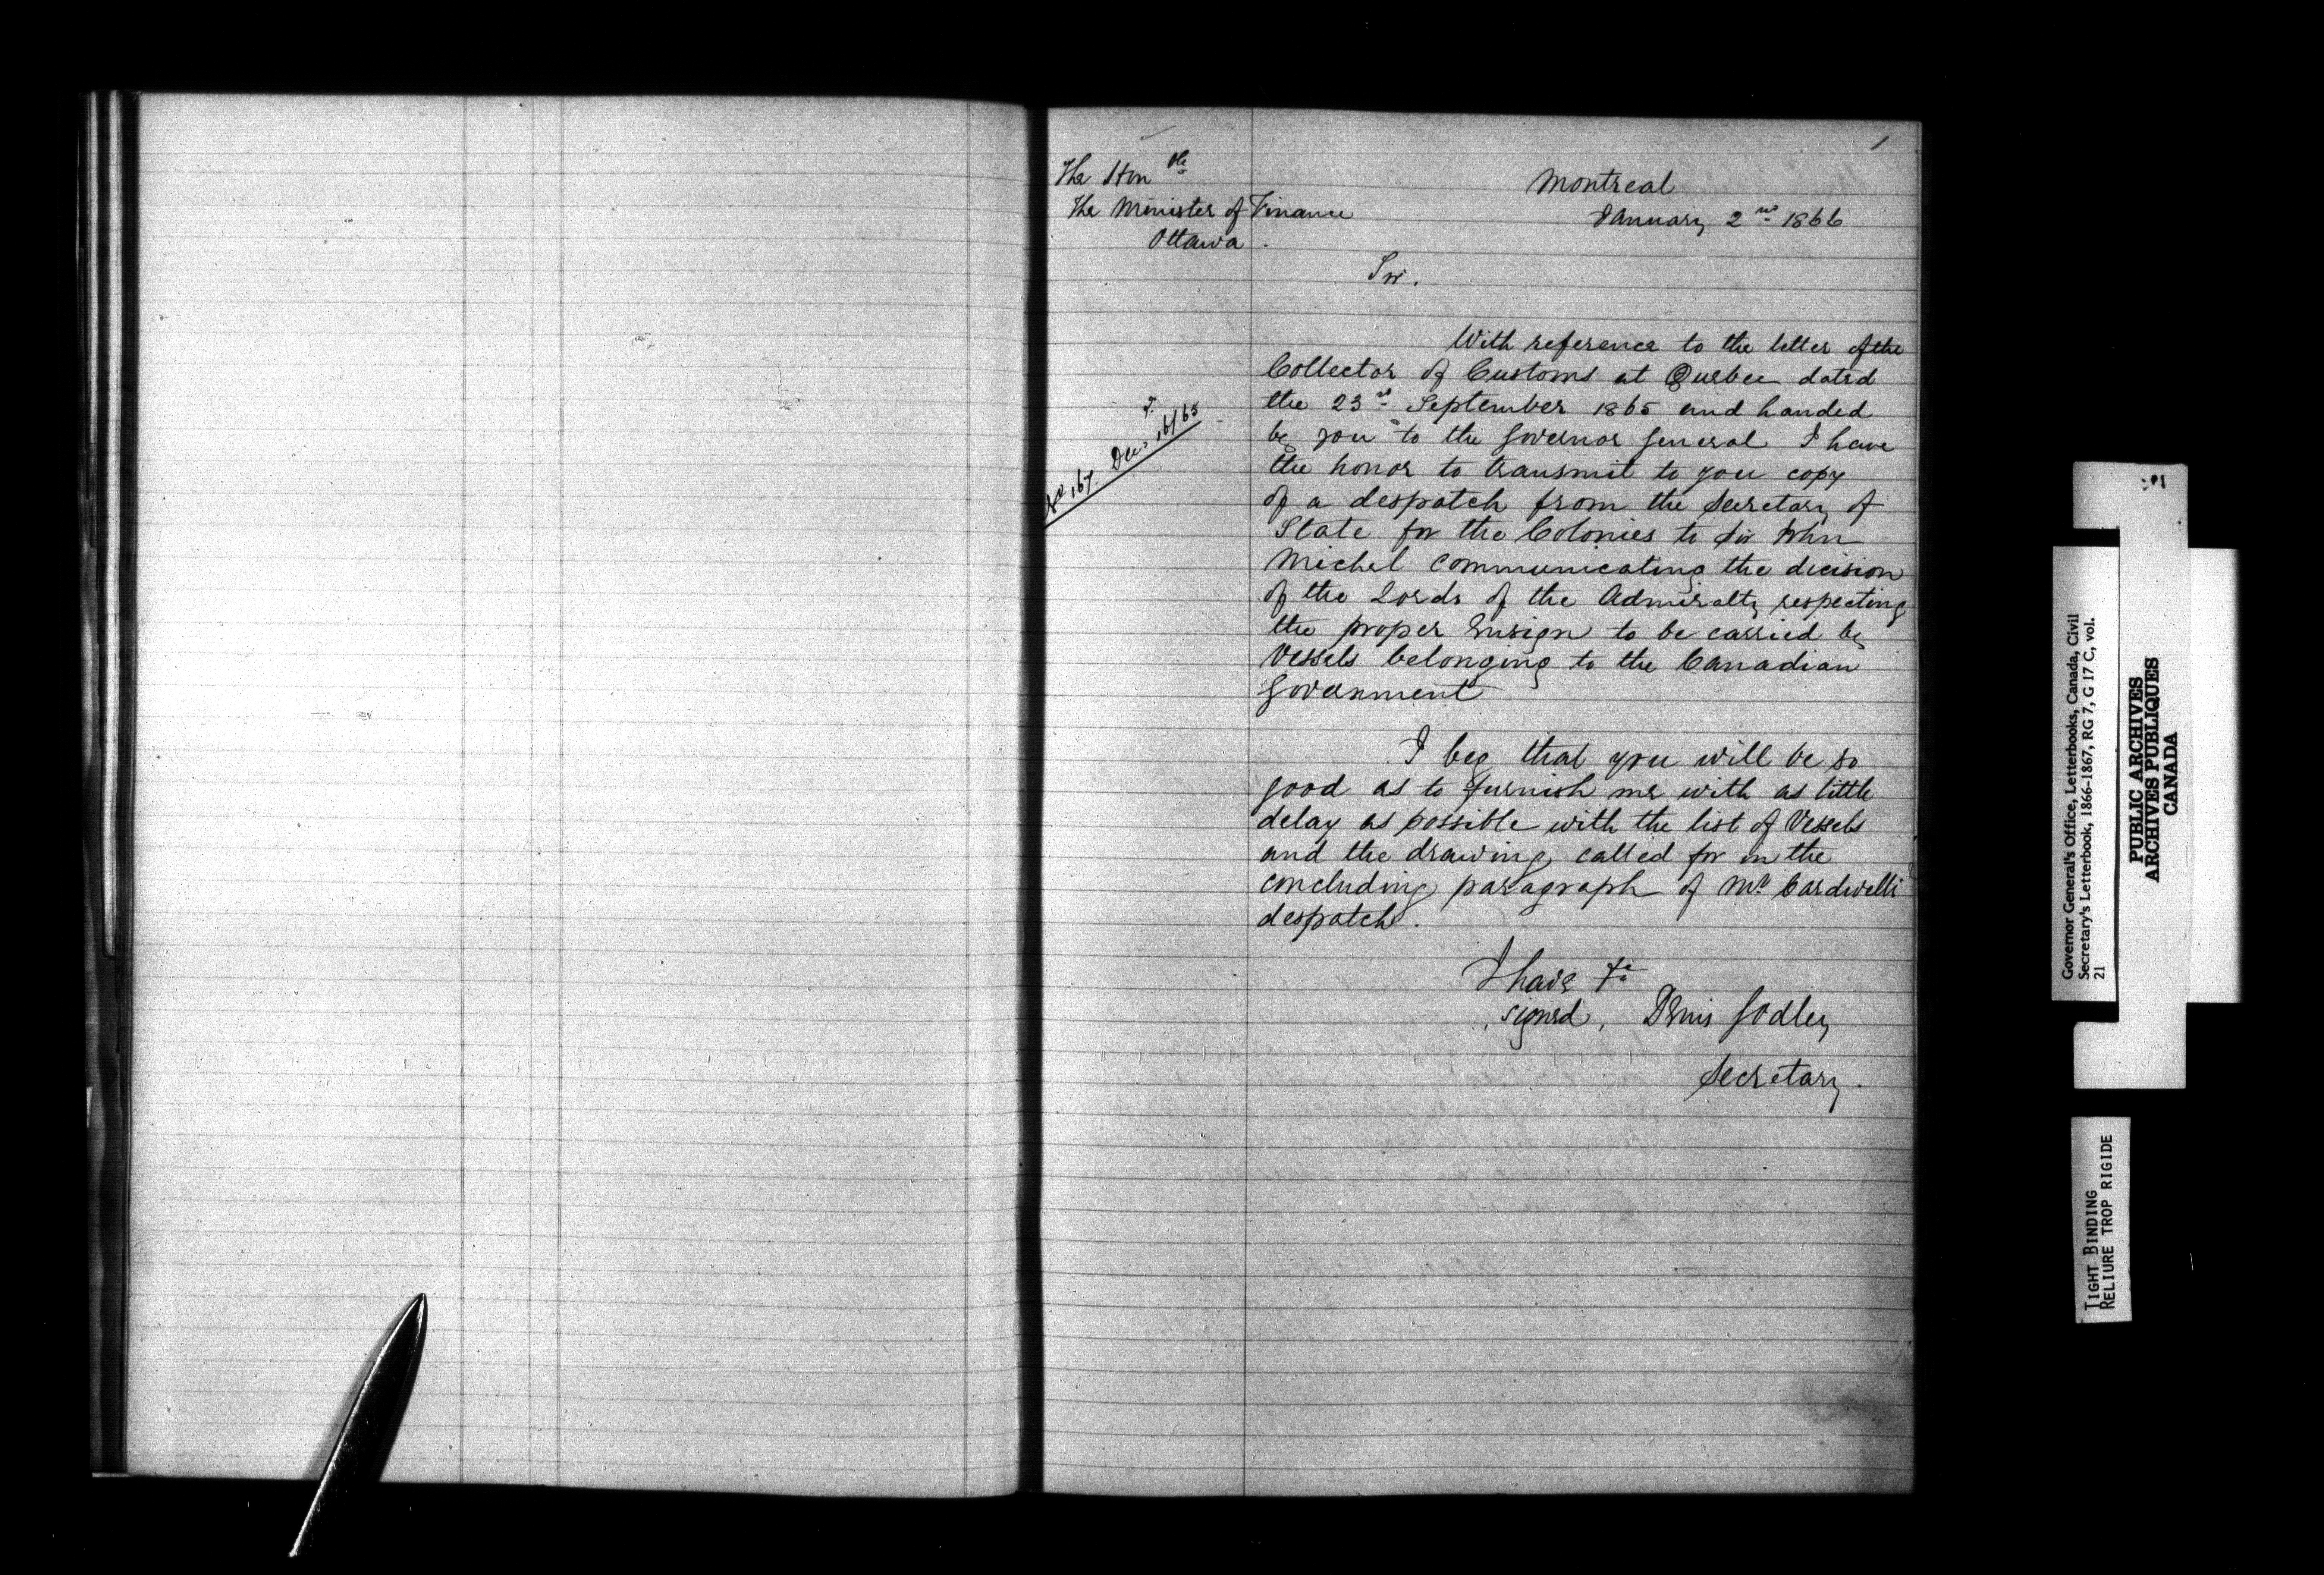 1
The Honble
The Minister of Finance
Ottawa.
Montreal
January 2nd 1866
Sir.
With reference to the letter of the
Collector of Customs at Quebec dated
the 23rd September 1865 and handed
by you to the Governor General I have
the honor to transmit to you copy
of a despatch from the Secretary of
State for the Colonies to Sir John
Michel communicating the decision
of the Lords of the Admiralty respecting
the proper Ensign to be carried by
Vessels belonging to the Canadian
Government
No 167. Dec: 16/65
I beg that you will be so
good as to furnish me with as little
delay as possible with the list of Vessels
and the drawing called for in the
concluding paragraph of Mr Cardwell's
despatch.
I have &c
signed, Denis Godley
Secretary.
Governor General's Office, Letterbooks, Canada, Civil
Secretary's Letterbook, 1866-1867, RG 7, G 17 C, vol.
21
PUBLIC ARCHIVES
ARCHIVES PUBLIQUES
CANADA
TIGHT BINDING
RELIURE TROP RIGIDE